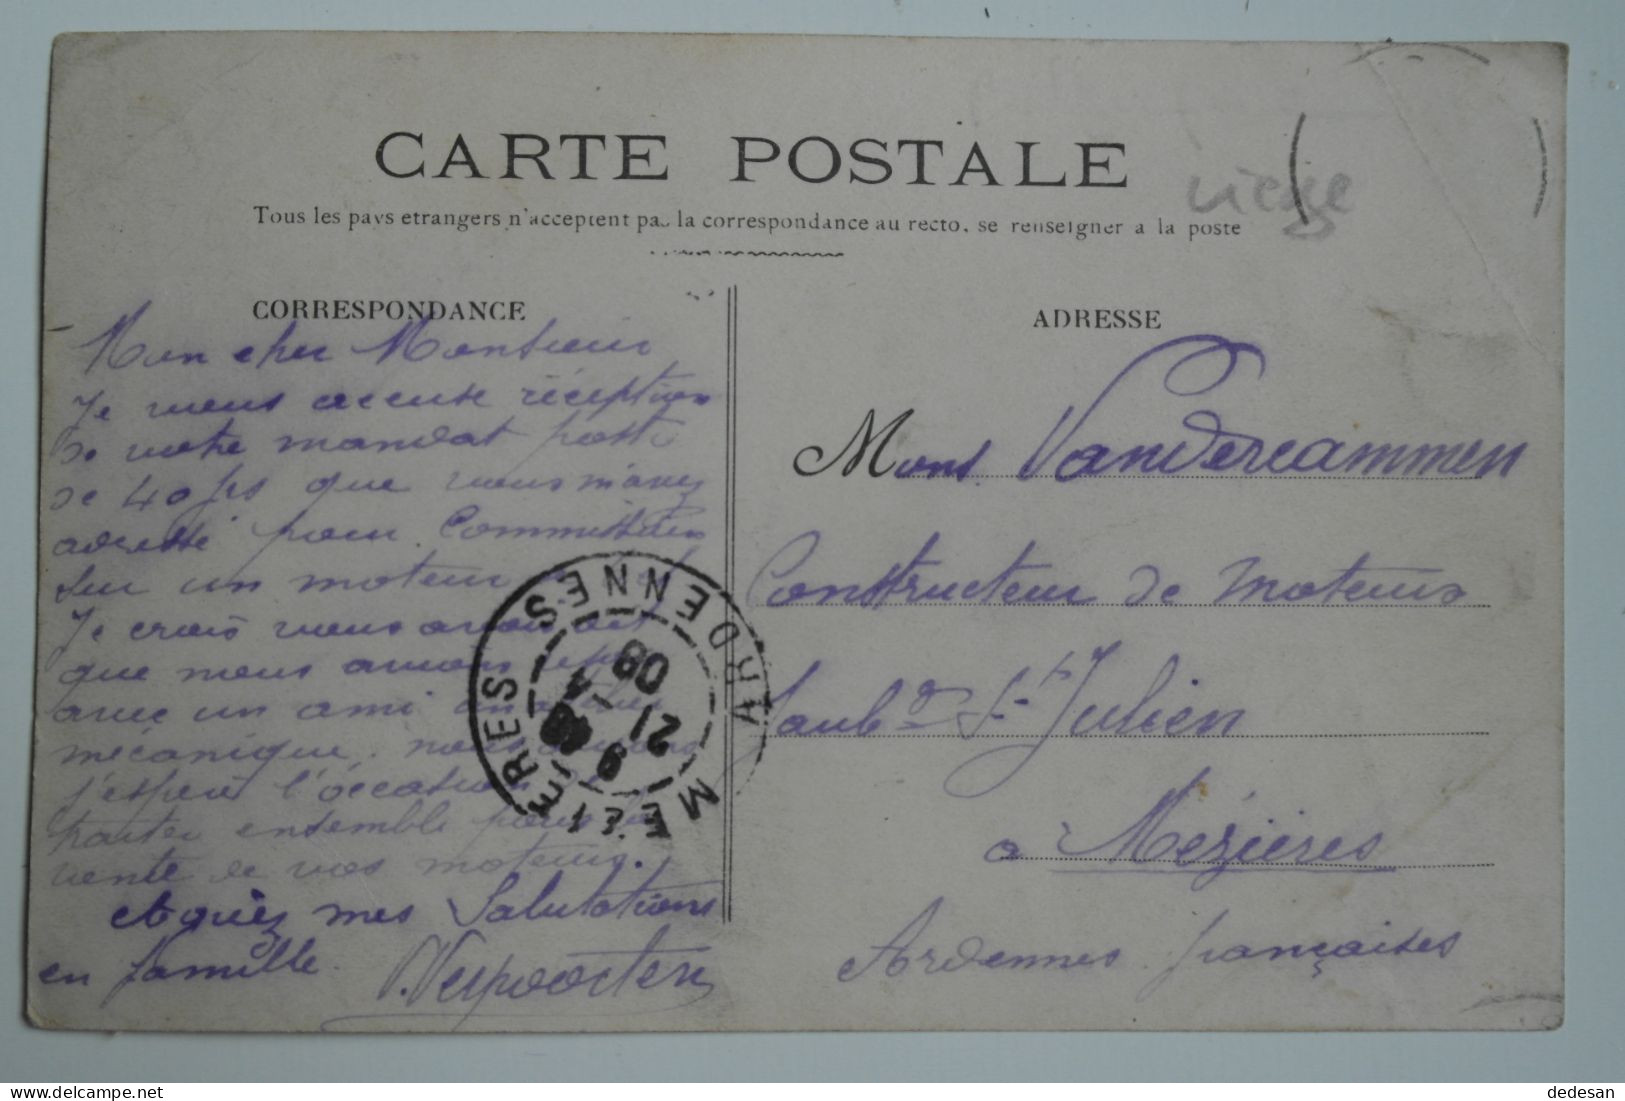 CARTE POSTALE
Liège
Tous les pays etrangers n'acceptent pas la correspondance au recto, se renseigner a la poste
CORRESPONDANCE
Mon cher Monsieur
Je vous accuse réception
de votre mandat poste
de 40 frs que vous m'avez
adressé pour Commission
sur un moteur
Je crois vous avoir dit
que nous avions
avec un ami
mécanique, nous
j'espère l'occasion de
traiter ensemble pour la
vente de vos moteurs.
et ayiez mes Salutations
en famille.
V. Verpoorten
MEZIERES ARDENNES
9
21 -4
08
ADRESSE
Mons Vandercammen
Constructeur de moteurs
Faubg St Julien
a Mézières
Ardennes françaises
dedesan